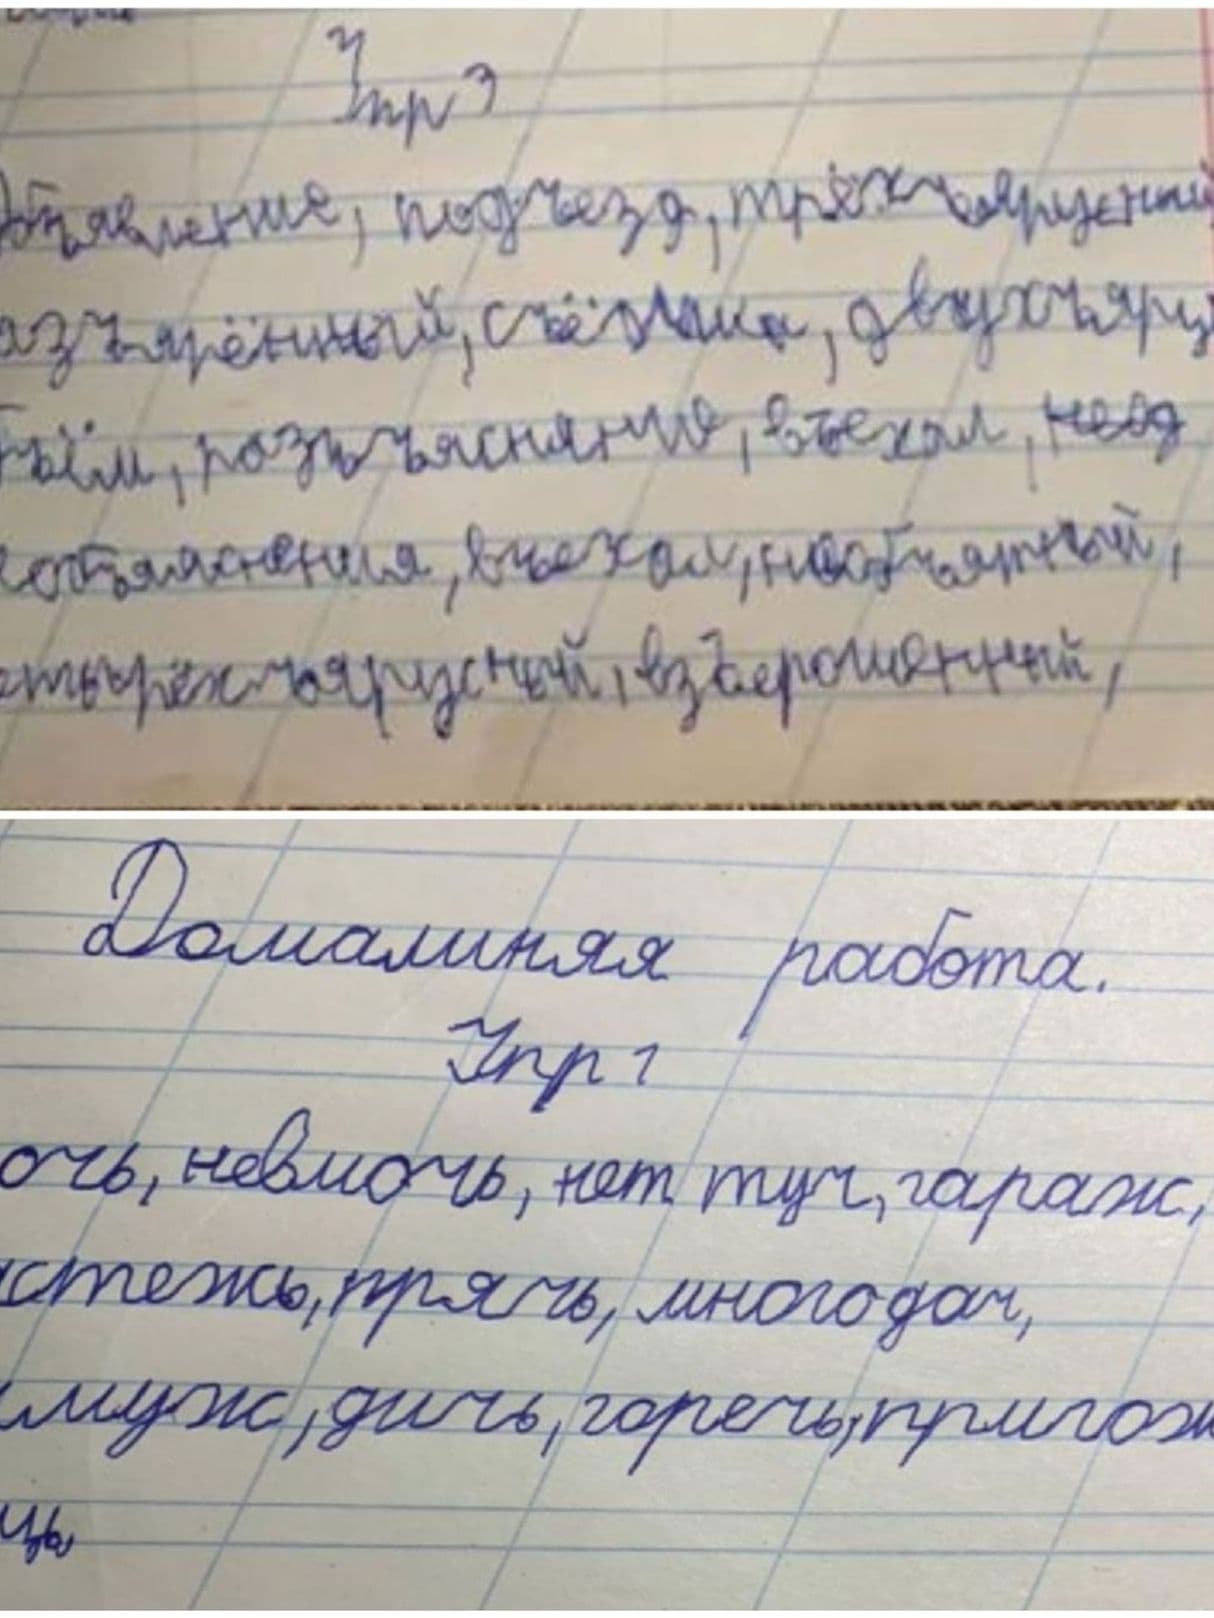 Упр 3
Объявление, подъезд, трёхъярусный
азъярённый, съёмка, двухъярус
бъём, разъяснение, въехал,
необъяснения, въехал, необъятный,
етырёхъярусный, взъерошенный,
Домашняя работа.
Упр 1
очь, невмочь, нет туч, гараж,
стежь, прячь, много дач,
муж, дичь, горечь, пригож
щь